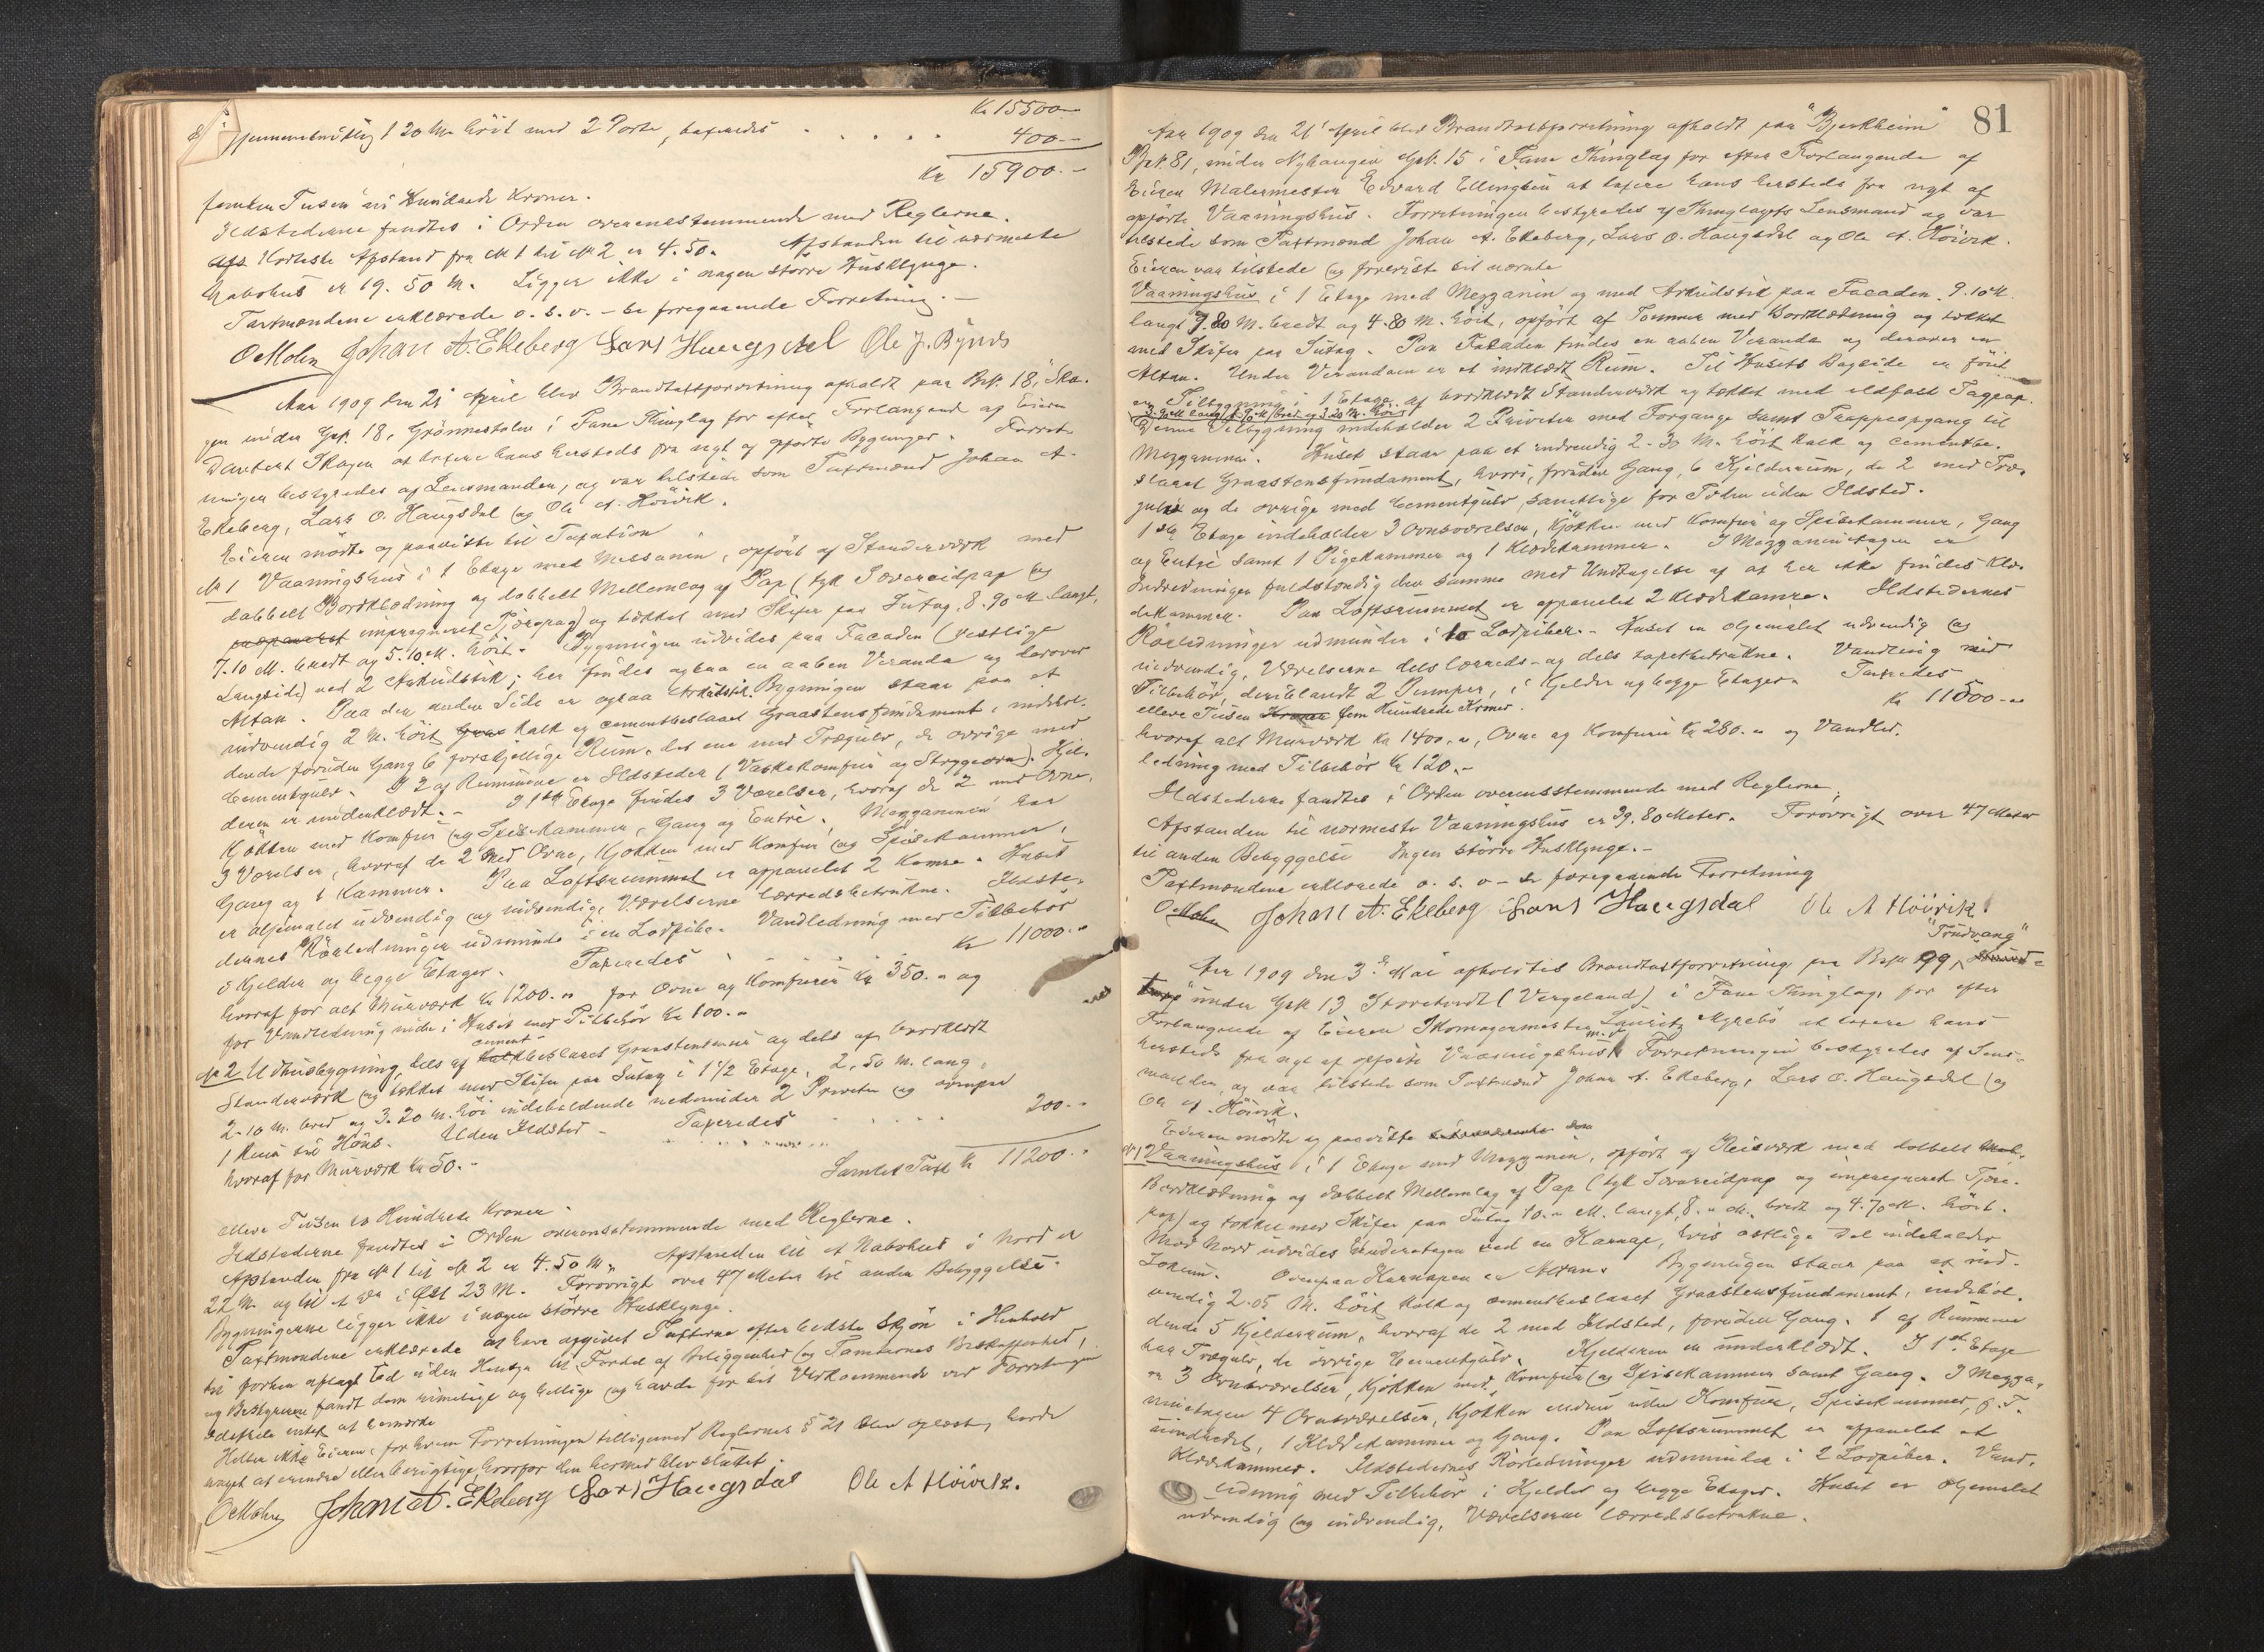 Kr 15500 -
gjennemsnitlig 1.20 M. höit med 2 Porte, taxeredes . . . . 400 -
Kr 15900 -
femten Tusen ni Hundrede Kroner.
Ildstederne fandtes i Orden overensstemmende med Reglerne.
Korteste Afstand fra № 1 til № 2 er 4.50. Afstanden til nærmeste
Nabohus er 19.50 M. Ligger ikke i nogen större Husklynge.
Taxtmændene erklærede o. s. v. - se foregaaende Forretning. -
O Mohn Johan A. Ekeberg Lars Haugsdal Ole J. Birkes
Aar 1909 den 21 April blev Brandtaxtforretning afholdt paa Brk. 18, "Ska-
gen" under Grk. 18, Grönnestolen i Fane Thinglag for efter Forlangende af Eieren
Skagen at taxere hans hersteds fra nyt af opförte Bygninger. Forret-
ningen bestyredes af Lensmanden, og var tilstede som Taxtmænd Johan A.
Ekeberg, Lars O. Haugsdal og Ole A. Höivik.
Eieren mödte og paaviste til Taxation
№ 1 Vaaningshus i 1 Etage med Messanin, opfört af Standerværk med
dobbelt Bordklædning og dobbelt Mellemlag af Pap (tyk Sovereidpap og
impregneret Tjærepap) og tækket med Skifer paa Sutag, 8.90 M. langt,
7.10 M. bredt og 5.10 M. höit. Bygningen udvides paa Facaden (vestlige
Langside) ved 2 Arkudstik; her findes ogsaa en aaben Veranda og derover
Altan. Paa den anden Side er ogsaa Arkudstik. Bygningen staar paa et
indvendig 2 M. höit Kalk og cementbeslaaet Graastensfundament, indehol-
dende foruden Gang 6 forskjellige Rum, det ene med Trægulv, de övrige med
Cementgulv. I 2 af Rummene er Ildsteder (Vaskekomfur og Strygeovn). Kjel-
deren er underklædt. - I 1ste Etage findes 3 Værelser, hvoraf de 2 med Ovne,
Kjökken med Komfur og Spisekammer, Gang og Entré. Mezzaninen har
3 Værelser, hvoraf de 2 med Ovne, Kjökken med Komfur og Spisekammer,
Gang og 1 Kammer. Paa Loftsrummet er oppanelet 2 Kamre. Huset
er oljemalet udvendig og indvendig, Værelserne lærredsbetrukne. Ildste-
dernes Rörledninger udmunde i en Lodpibe. Vandledning med Tilbehör
i Kjelder og begge Etager. Taxeredes Kr 11000 -
hvoraf for alt Murværk Kr 1200.- for Ovne og Komfurer Kr 350.- og
for Vandledning inde i Huset med Tilbehör Kr 100.-
№ 2 Udhusbygning, dels af cementbeslaaet Graastensmur og dels af bordklædt
Standerværk og tækket med Skifer paa Sutag i 1 1/2 Etage, 2.50 M. lang,
2.10 M. bred og 3.20 M. höi indeholdende nedenunder 2 Priveter og ovenpaa
1 Rum til Höns. Uden Ildsted - Taxeredes . . . . 200.-
hvoraf for Murværk Kr 50.-
Samlet Taxt Kr 11200.-
elleve Tusen to Hundrede Kroner.
Ildstederne fandtes i Orden overensstemmende med Reglerne.
Afstanden fra № 1 til № 2 er 4.50 M. Afstanden til et Nabohus i Nord er
22 M. og til et do i Öst 23 M. Forövrigt over 47 Meter til anden Bebyggelse.
Bygningerne ligger ikke i nogen större Husklynge.
Taxtmændene erklærede at have afgivet Taxterne efter bedste Skjön i Henhold
til forhen aflagt Ed uden Hensyn til Fordel af Beliggenhed og Tomternes Beskaffenhed,
og Bestyreren fandt dem rimelige og billige og havde for sit Vedkommende ved Forretningen
intet at bemærke
Heller ikke Eieren, for hvem Forretningen tilligemed Reglernes § 21 blev oplæst, havde
noget at erindre eller berigtige hvorfor den hermed blev sluttet.
O Mohn Johan A. Ekeberg Lars Haugsdal Ole A Höivik.
81
Aar 1909 den 21 April blev Brandtaxtforretning afholdt paa "Bjerkheim"
Brk. 81, under Nyhaugen Grk. 15 i Fane Thinglag for efter Forlangende af
Eieren Malermester Edvard Ellingsen at taxere hans hersteds fra nyt af
opförte Vaaningshus. Forretningen bestyredes af Thinglagets Lensmand og var
tilstede som Taxtmænd Johan A. Ekeberg, Lars O. Haugsdal og Ole A. Höivik.
Eieren var tilstede og foreviste sit nævnte
Vaaningshus i 1 Etage med Mezzanin og med Arkudstik paa Facaden, 9.10 M.
langt 7.80 M. bredt og 4.80 M. höit, opfört af Tömmer med Bordklædning og tækket
med Skifer paa Sutag. Paa Facaden findes en aaben Veranda og derover en
Altan. Under Verandaen er et indklædt Rum. Til Husets Bagside er föiet
en Tilbygning i 1 Etage af bordklædt Standerværk og tækket med ildfast Tagpap.
Denne Tilbygning indeholder 2 Priveter med Forgange samt Trappeopgang til
Mezzaninen. Huset staar paa et indvendig 2.30 M. höit Kalk og cementbe-
slaaet Graastensfundament, hvori, foruden Gang, 6 Kjelderrum, de 2 med Træ-
gulv og de övrige med Cementgulv, samtlige for Tiden uden Ildsted.
1ste Etage indeholder 3 Ovnsværelser, Kjökken med Komfur og Spisekammer, Gang
og Entré samt 1 Pigekammer og 1 Klædekammer. I Mezzaninetagen er
Indredningen fuldstændig den samme med Undtagelse af at her ikke findes Klæ-
dekammer. Paa Loftsrummet er oppanelet 2 Klædekamre. Ildstedernes
Rörledninger udmunder i to Lodpiber. - Huset er oljemalet udvendig og
indvendig, Værelserne dels lærreds- og dels tapetbetrukne. Vandledning med
Tilbehör, deriblandt 2 Pumper, i Kjelder og begge Etager. Taxeredes
Kr 11500 -
elleve Tusen fem Hundrede Kroner.
hvoraf alt Murværk Kr 1400.-, Ovne og Komfurer Kr 280.- og Vandled-
ledning med Tilbehör Kr 120.-
Ildstederne fandtes i Orden overensstemmende med Reglerne.
Afstanden til nærmeste Vaaningshus er 39.80 Meter. Forövrigt over 47 Meter
til anden Bebyggelse. Ingen större Husklynge. -
Taxtmændene erklærede o. s. v. - se foregaaende Forretning
O Mohn Johan A. Ekeberg Lars Haugsdal Ole A Höivik.
"Trudvang"
Aar 1909 den 3die Mai afholdtes Brandtaxtforretning paa Brk 99,
under Grk 13 Storetvedt (Vergeland) i Fane Thinglag, for efter
Forlangende af Eieren Skomagermester Lauritz Myrebö at taxere hans
hersteds fra nyt af opförte Vaaningshus m. v. Forretningen bestyredes af Lens-
manden, og var tilstede som Taxtmænd Johan A. Ekeberg, Lars O. Haugsdal og
Ole A. Höivik.
Eieren mödte og paaviste
№ 1 Vaaningshus i 1 Etage med Mezzanin, opfört af Reisværk med dobbelt
Bordklædning og dobbelt Mellemlag af Pap (tyk Sovereidpap og impregneret Tjære-
pap) og tækket med Skifer paa Sutag 10.- M. langt, 8.- M. bredt og 4.70 M. höit.
Mod Nord udvides Underetagen ved en Karnap, hvis östlige Del indeholder
Lokum. Ovenpaa Karnapen er Altan. Bygningen staar paa et ind-
vendig 2.05 M. höit Kalk og cementbeslaaet Graastensfundament, indehol-
dende 5 Kjelderrum, hvoraf de 2 med Ildsted, foruden Gang. 1 af Rummene
har Trægulv, de övrige Cementgulv. Kjelderen er underklædt. I 1ste Etage
er 3 Ovnsværelser, Kjökken med Komfur og Spisekammer samt Gang. I Mezza-
ninetagen 4 Ovnsværelser, Kjökken endnu uden Komfur, Spisekammer, p. T.
uindredet, 1 Klædekammer og Gang. Paa Loftsrummet er oppanelet et
Klædekammer. Ildstedernes Rörledninger udmunder i 2 Lodpiber. Vand-
ledning med Tilbehör i Kjelder og begge Etager. Huset er oljemalet
udvendig og indvendig, Værelserne lærredsbetrukne.